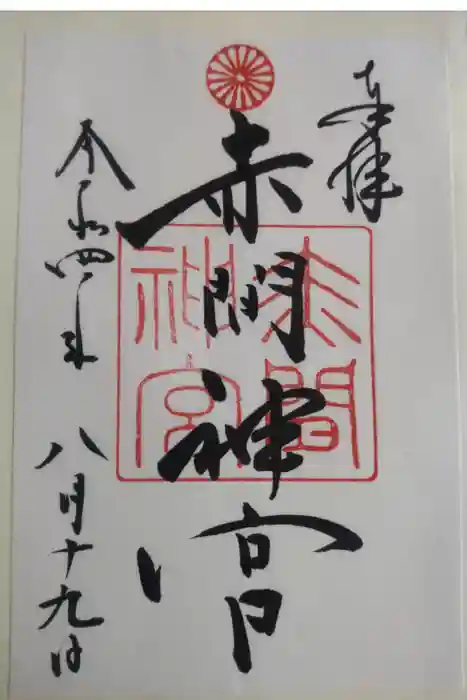 奉拝
赤間神宮
赤間神宮
令和四年 八月十九日